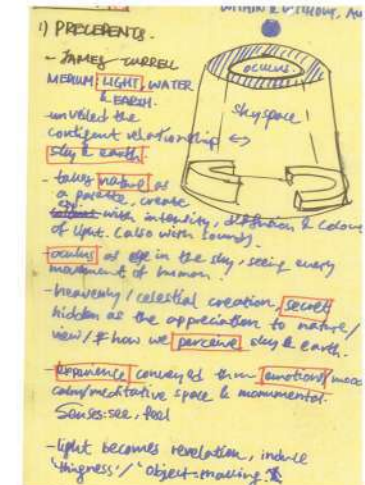 WITHIN & WITHOUT, Au
1) PRECEDENTS.
- JAMES TURRELL
MEDIUM: LIGHT, WATER
& EARTH.
oculus.
skyspace
- unveiled the
contigent relationship <->
sky & earth.
- takes nature as
a palette, create
with intensity, diffusion & colour
of light. (also with sound).
- oculus as eye in the sky, seeing every
movement of human.
- heavenly/celestial creation, secret
hidden as the appreciation to nature/
view/ how we perceive sky & earth.
- experience conveyed thru emotions/
calm/meditative space & monumental.
Senses: see, feel
- light becomes revelation, induce
'thingness'/'object-making.